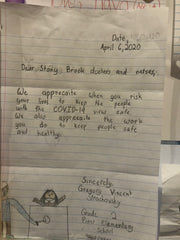 Date,
April 6, 2020
Dear Stony Brook doctors and nurses,
We appreciate when you risk
your lives to keep the people
with the COVID-19 virus safe
We also appreciate the work
you do to keep people safe
and healthy.
Sincerely,
Gregory Vincent
Grade 2
Elementary
School